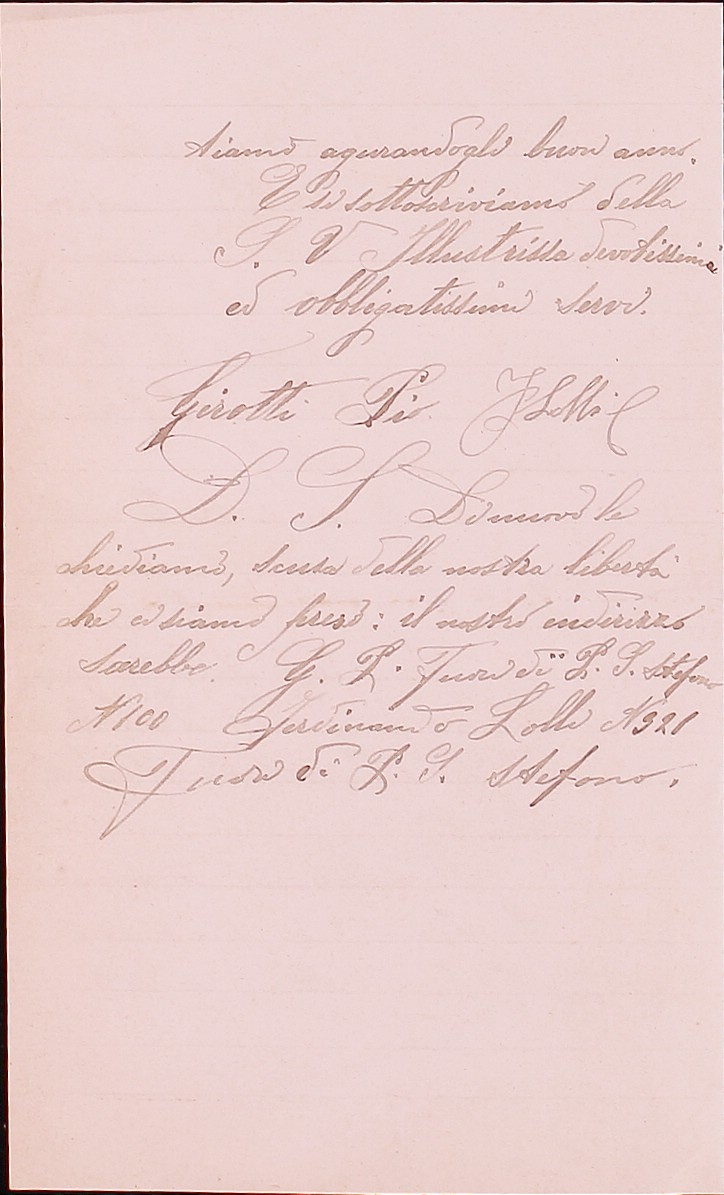 tiamo agurandogli buon anno.
E si sottoscriviamo della
S. V Illustrissa devotissimi
ed obbligatissimi servi.
Girotti Pio F Lolli
D. S. Di nuovo le
chiediamo, scusa della nostra libertà
che ci siamo preso: il nostro indirizzo
sarebbe. G. P. Fuori di P. S. Stefono
N 100 Ferdinando Lolli N 321
Fuori di P. S. Stefono.